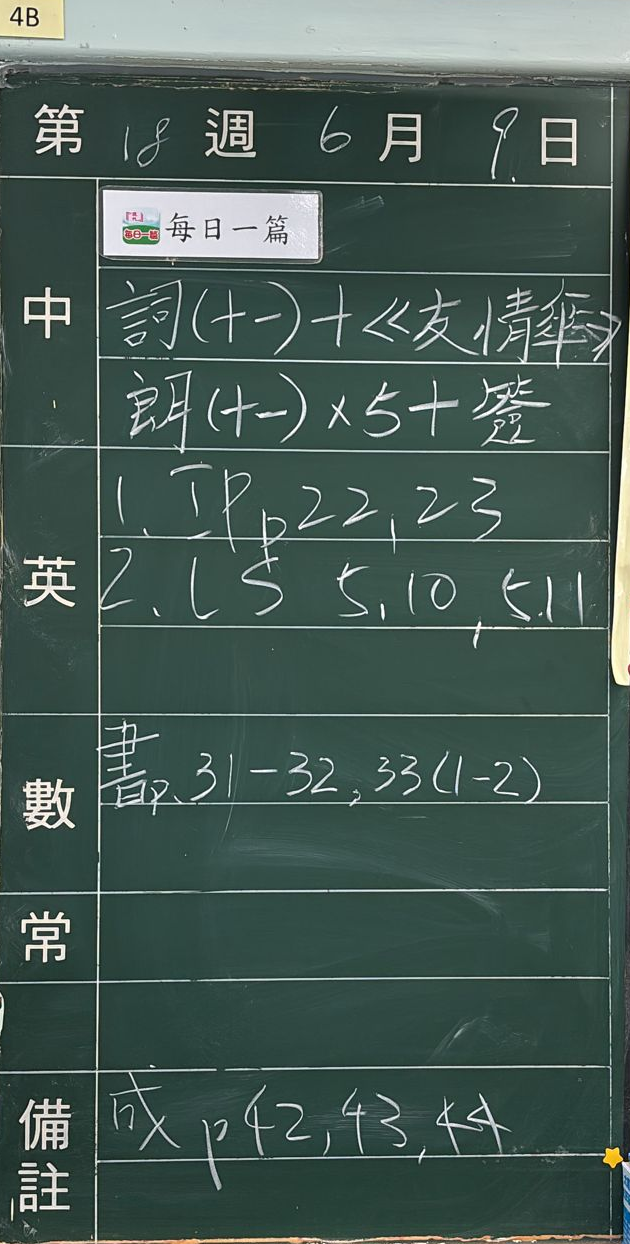 4B
第 18 週 6 月 9 日
中
每日一篇 每日一篇
詞(十一)+《友情傘》
朗(十一)×5+簽
英
1. IP p22, 23
2. LS 5.10, 5.11
數
書p. 31-32, 33(1-2)
常
備註
成 p42, 43, 44